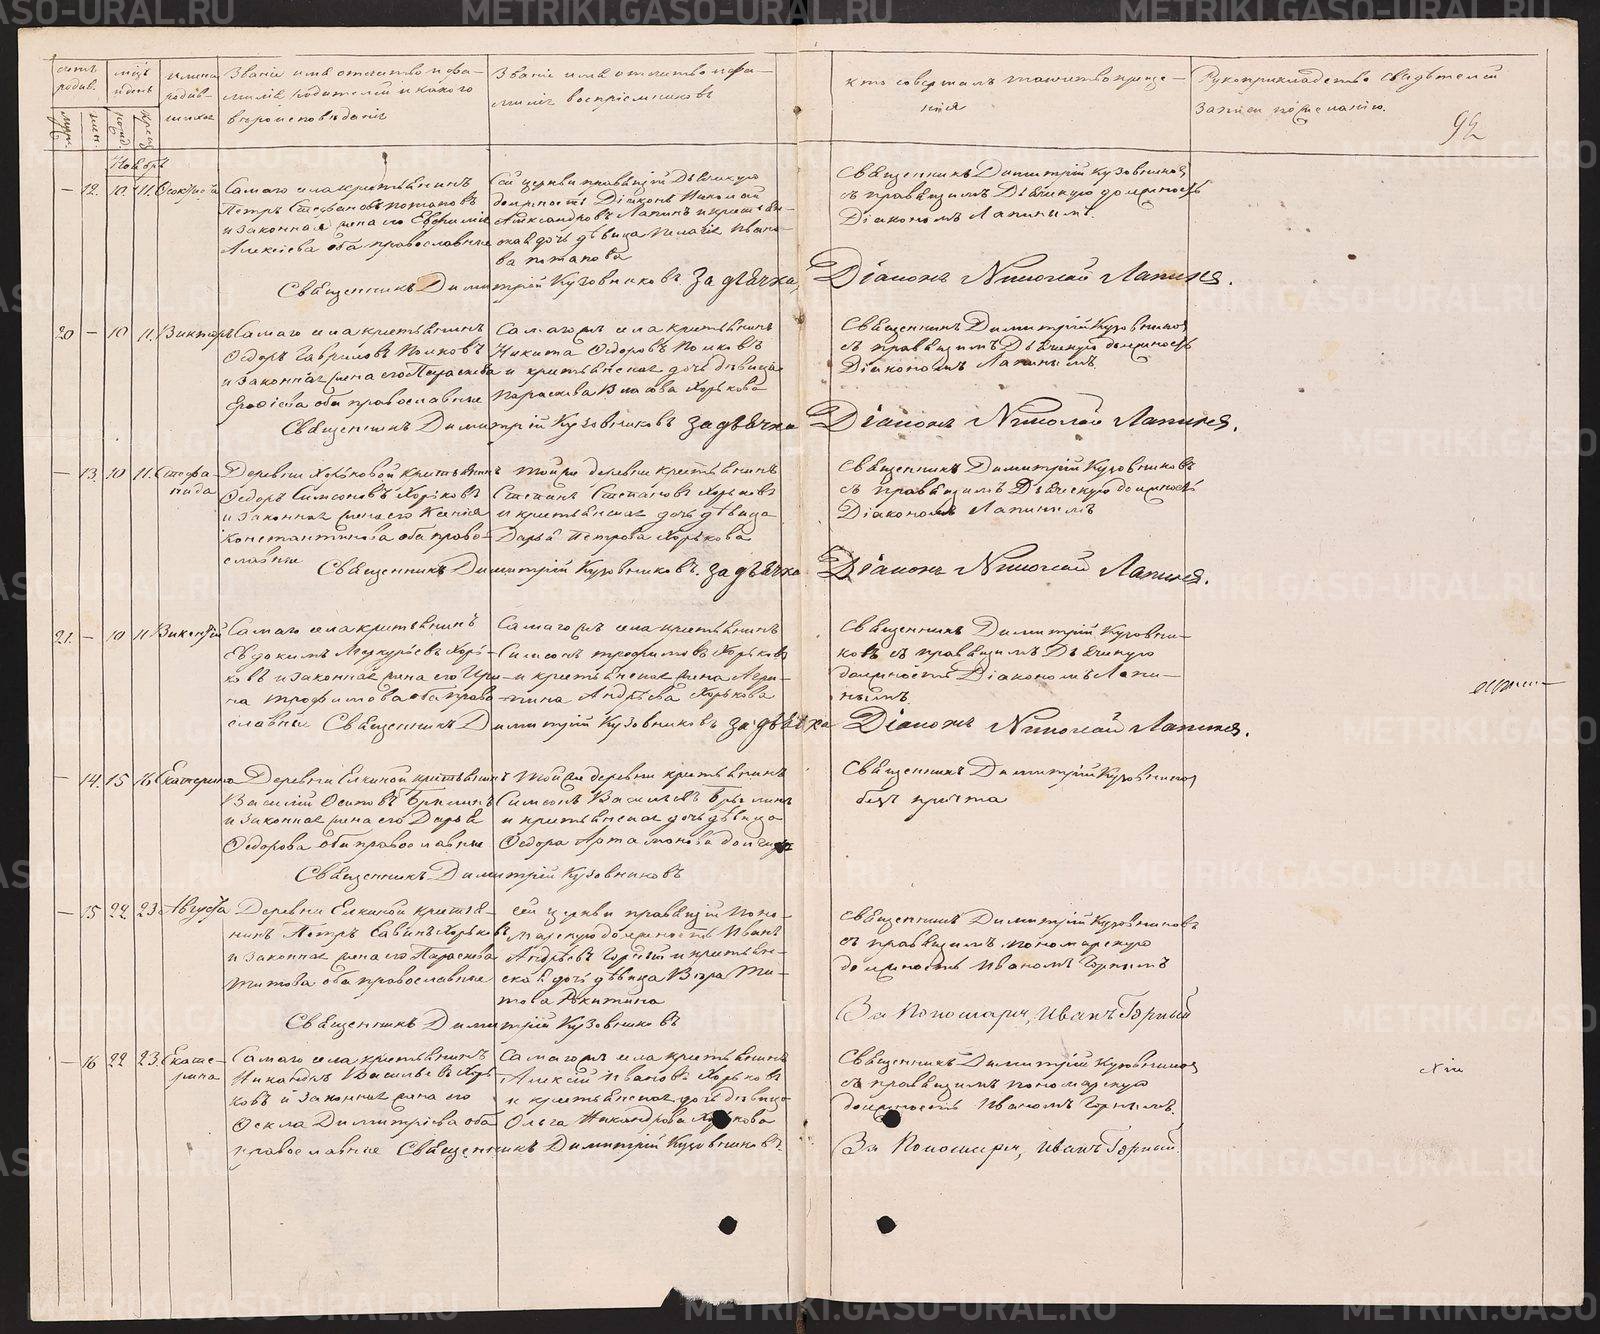 счетъ родив.
муж.
жен.
мѣцъ и день
рожд.
крещ
имена родив-
шихся
Званіе имя отчество и фа-
милія родителей и какого
вѣроисповѣданія
Званіе имя отчество и фа-
милія воспріемниковъ
кто совершалъ таинство креще-
нія
Рукоприкладство свидѣтелей
записи по желанію.
92
Ноябрь
— 12. 10 11.
Самаго села крестьянинъ
Петръ Стефановъ Потаповъ
и законная жена его Евфимія
Алексіева оба православные
Сей церкви правящій Дьячкую
должность Діаконъ Николай
Александровъ Лапинъ и крестьян-
ская дочь дѣвица Пелагія Ивано-
ва Потапова
Священникъ Димитрій Кузовниковъ
съ правящимъ Дьячкую должность
Діакономъ Лапинымъ.
Священникъ Димитрій Кузовниковъ За дьячка, Діаконъ Николай Лапинъ.
20 — 10 11. Викторъ
Самаго села крестьянинъ
Ѳедоръ Гавриловъ Поповъ
и законная жена его Параскева
Ерофіева оба православные
Самаго же села крестьянинъ
Никита Ѳедоровъ Поповъ
и крестьянская дочь дѣвица
Параскева Власова Хорькова
Священникъ Димитрій Кузовниковъ
съ правящимъ Дьячкую должность
Діакономъ Лапинымъ.
Священникъ Димитрій Кузовниковъ За дьячка Діаконъ Николай Лапинъ.
— 13. 10 11. Стефа-
нида
Деревни Хорьковой крестьянинъ
Ѳедоръ Симеоновъ Хорьковъ
и законная жена его Ксенія
Константинова оба право-
славные
Той же деревни крестьянинъ
Степанъ Степановъ Хорьковъ
и крестьянская дочь дѣвица
Дарья Петрова Хорькова
Священникъ Димитрій Кузовниковъ
съ правящимъ Дьяческую должность
Діакономъ Лапинымъ
Священникъ Димитрій Кузовниковъ. За дьячка Діаконъ Николай Лапинъ.
21. — 10 11 Викентій
Самаго села крестьянинъ
Евдокимъ Меркурьевъ Хорь-
ковъ и законная жена его Ири-
на Трофимова оба право-
славные
Самаго же села крестьянинъ
Симеонъ Трофимовъ Хорьковъ
и крестьянская жена Агри-
пина Андреева Хорькова
Священникъ Димитрій Кузовни-
ковъ съ правящимъ Дьячкую
должность Діакономъ Лапи-
нымъ.
Священникъ Димитрій Кузовниковъ за дьячка Діаконъ Николай Лапинъ.
— 14. 15 16 Екатерина
Деревни Елкиной крестьянинъ
Василій Осиповъ Брылинъ
и законная жена его Дарья
Ѳедорова оба православные
Той же деревни крестьянинъ
Симеонъ Васильевъ Брылинъ
и крестьянская дочь дѣвица
Ѳедора Артамонова
Священникъ Димитрій Кузовниковъ
безъ причта
Священникъ Димитрій Кузовниковъ
— 15 22 23 Августа
Деревни Елкиной крестья-
нинъ Петръ Савинъ Хорьковъ
и законная жена его Параскева
Титова оба православные
Сей церкви правящій поно-
марскую должность Иванъ
Андреевъ Горный и крестьян-
ская дочь дѣвица Вѣра Ти-
това Рѣкитина
Священникъ Димитрій Кузовниковъ
съ правящимъ пономарскую
должность Иваномъ Горнымъ
За Пономаря, Иванъ Горный
Священникъ Димитрій Кузовниковъ
— 16 22 23. Екате-
рина
Самаго села крестьянинъ
Никандръ Васильевъ Хорь-
ковъ и законная жена его
Ѳекла Димитріева оба
православные
Самаго же села крестьянинъ
Алексій Ивановъ Хорьковъ
и крестьянская дочь дѣвица
Ольга Никандрова Хорькова
Священникъ Димитрій Кузовниковъ
съ правящимъ пономарскую
должность Иваномъ Горнымъ.
За Пономаря, Иванъ Горный.
Священникъ Димитрій Кузовниковъ.
METRIKI.GASO-URAL.RU